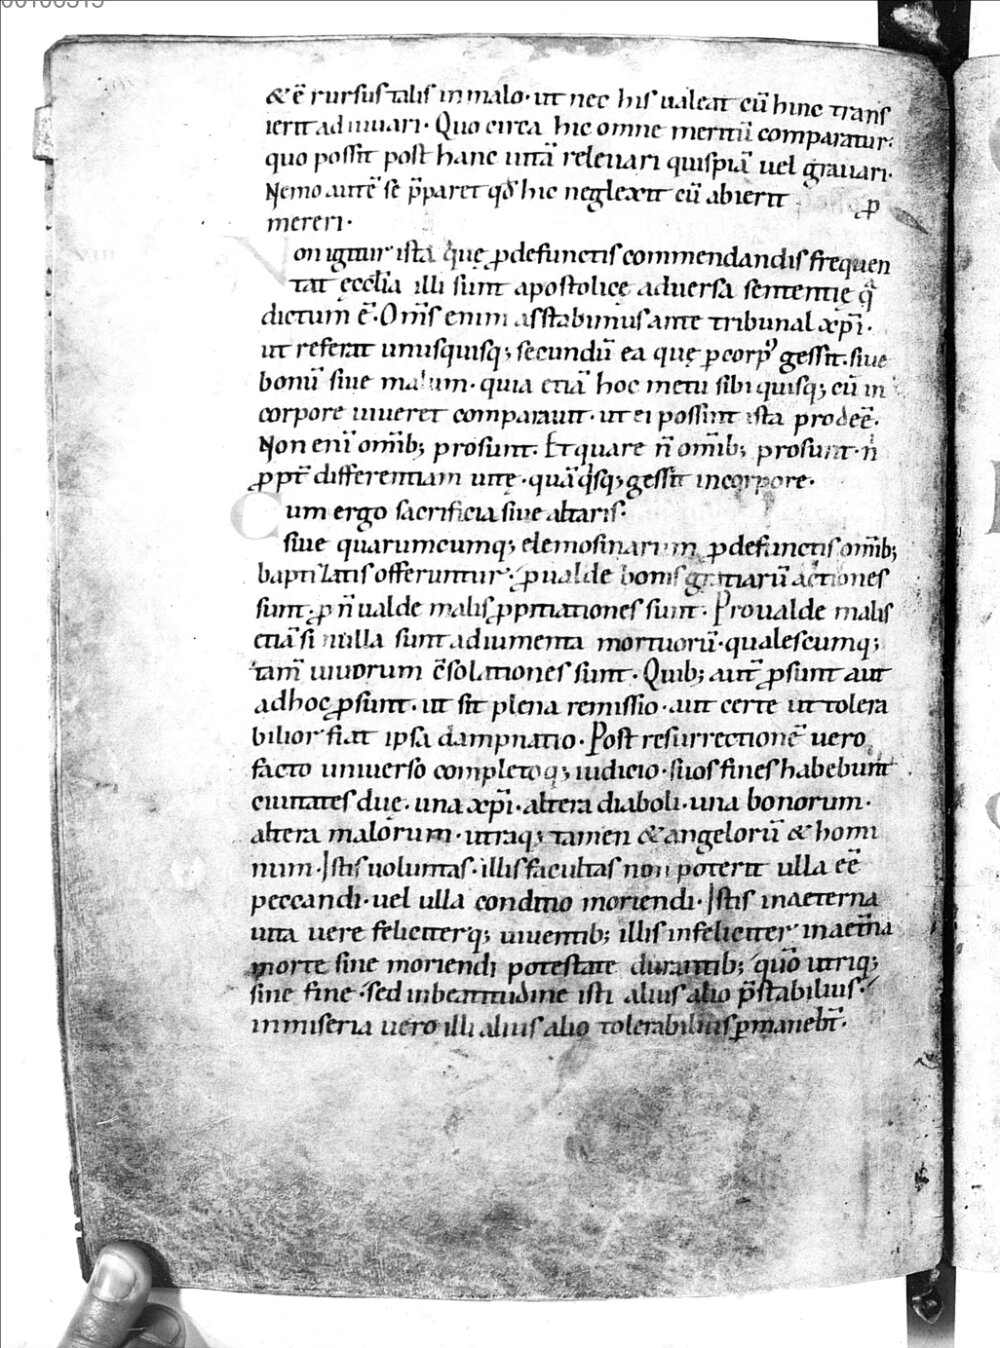 &ē rursus talis in malo· ut nec his ualeat cū hinc trans
ierit adiuuari· Quo circa hic omne meritū comparatur·
quo possit post hanc uitā releuari quispiā uel grauari·
Nemo autē se p̄paret qđ hic neglexit cū abierit ꝓ
mereri·
Non igitur ista quę ꝓdefunctis commendandis frequen
tat ęcclia illi sunt apostolicę aduersa sententię q̄
dictum ē· Om̄s enim asstabimus ante tribunal xp̄i·
ut referat unusquisq; secundū ea quę ꝑ corpꝰ gessit· siue
bonū siue malum· quia etiā hoc metu sibi quisq; cū in
corpore uiueret comparauit· ut ei possint ista prodeē·
Non eni om̄ib; prosunt. Et quare n̄ om̄ib; prosunt· n
ꝓpt̄ differentiam uitę· quā qsq; gessit incorpore·
Cum ergo sacrificia siue altaris·
siue quarumcumq; elemosinarum ꝓdefunctis om̄ib;
baptizatis offeruntur· ꝓ ualde bonis gratiarū actiones
sunt· ꝓ n̄ ualde malis ꝓpitiationes sunt· Pro ualde malis
etiā si nulla sunt adiumenta mortuorū· qualescumq;
tam̄ uiuorum c̄solationes sunt· Quib; aut̄ ꝓsunt aut
adhoc ꝓsunt· ut sit plena remissio· aut certe ut tolera
bilior fiat ipsa dampnatio· Post resurrectionē uero
facto uniuerso completoq; iudicio· suos fines habebunt
ciuitates duę· una xp̄i· altera diaboli· una bonorum·
altera malorum· utraq; tamen & angelorū & homi
num· Istis uoluntas· illis facultas non poterit ulla eē
peccandi· uel ulla conditio moriendi· Istis inaeterna
uita uere feliciterq; uiuentib; illis infeliciter inaet̄na
morte sine moriendi potestate durantib; quō utriq;
sine fine· sed inbeatitudine isti alius alio p̄stabilius·
inmiseria uero illi alius alio tolerabilius ꝑmaneb̄t·